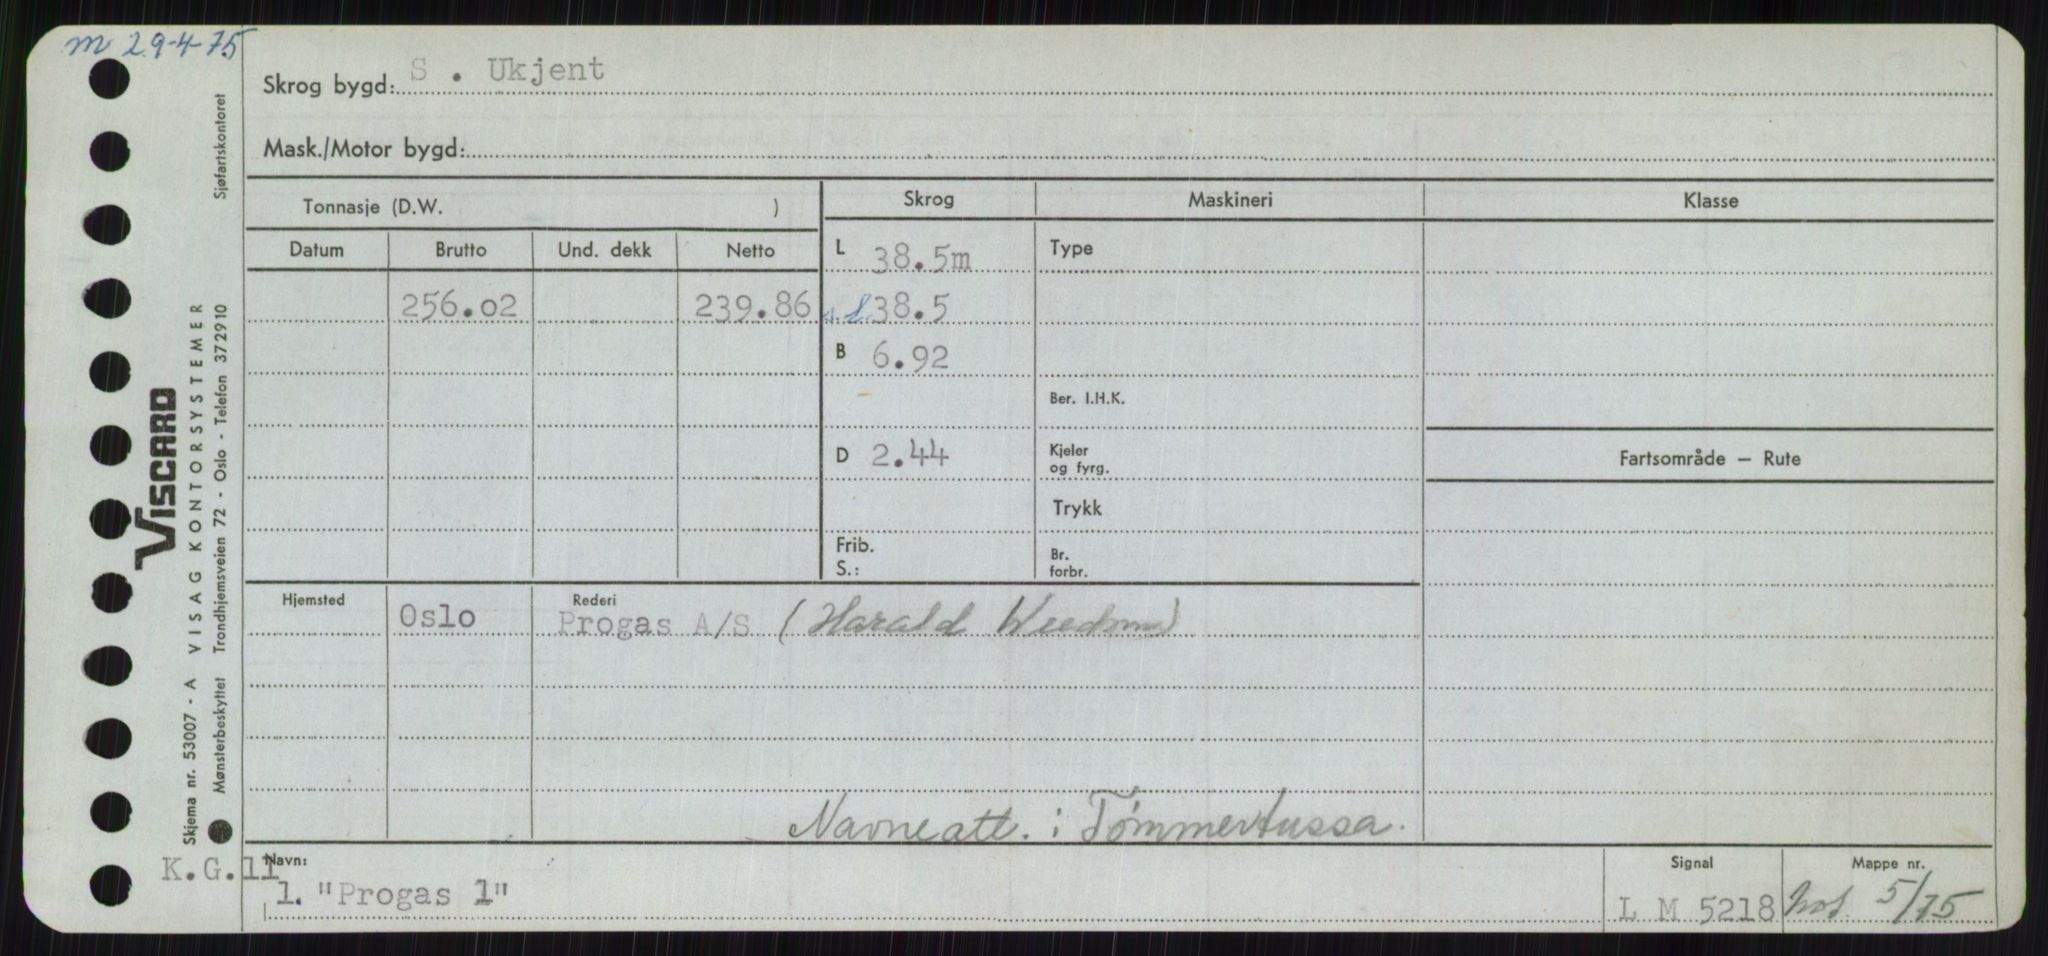 m 29-4-75
Skrog bygd: S . Ukjent
Mask./Motor bygd:
Tonnasje (D.W. )
Skrog
Maskineri
Klasse
Datum
Brutto
Und. dekk
Netto
L 38.5m
Type
256.02
239.86
38.5
B 6.92
Ber. I.H.K.
D 2.44
Kjeler
og fyrg.
Fartsområde — Rute
Trykk
Frib.
S.:
Br.
forbr.
Hjemsted
Oslo
Rederi
Progas A/S (Harald
Navneatt. i Tømmertussa.
K.G.11
Navn:
1. "Progas 1"
Signal
L M 5218
Mappe nr.
5/75
VISCARD
Skjema nr. 53007 - A VISAG KONTORSYSTEMER
Mønsterbeskyttet Trondhjemsveien 72 - Oslo - Telefon 372910 Sjøfartskontoret